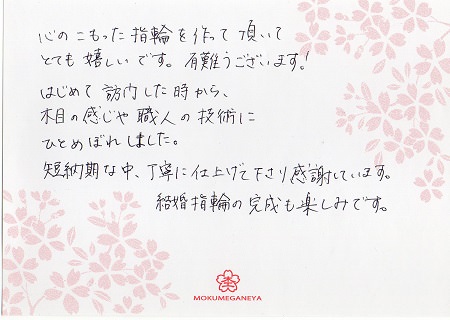 心のこもった指輪を作って頂いて
とても嬉しいです。有難うございます!
はじめて訪問した時から、
木目の感じや職人の技術に
ひとめぼれしました。
短納期な中、丁寧に仕上げて下さり感謝しています。
結婚指輪の完成も楽しみです。
MOKUMEGANEYA